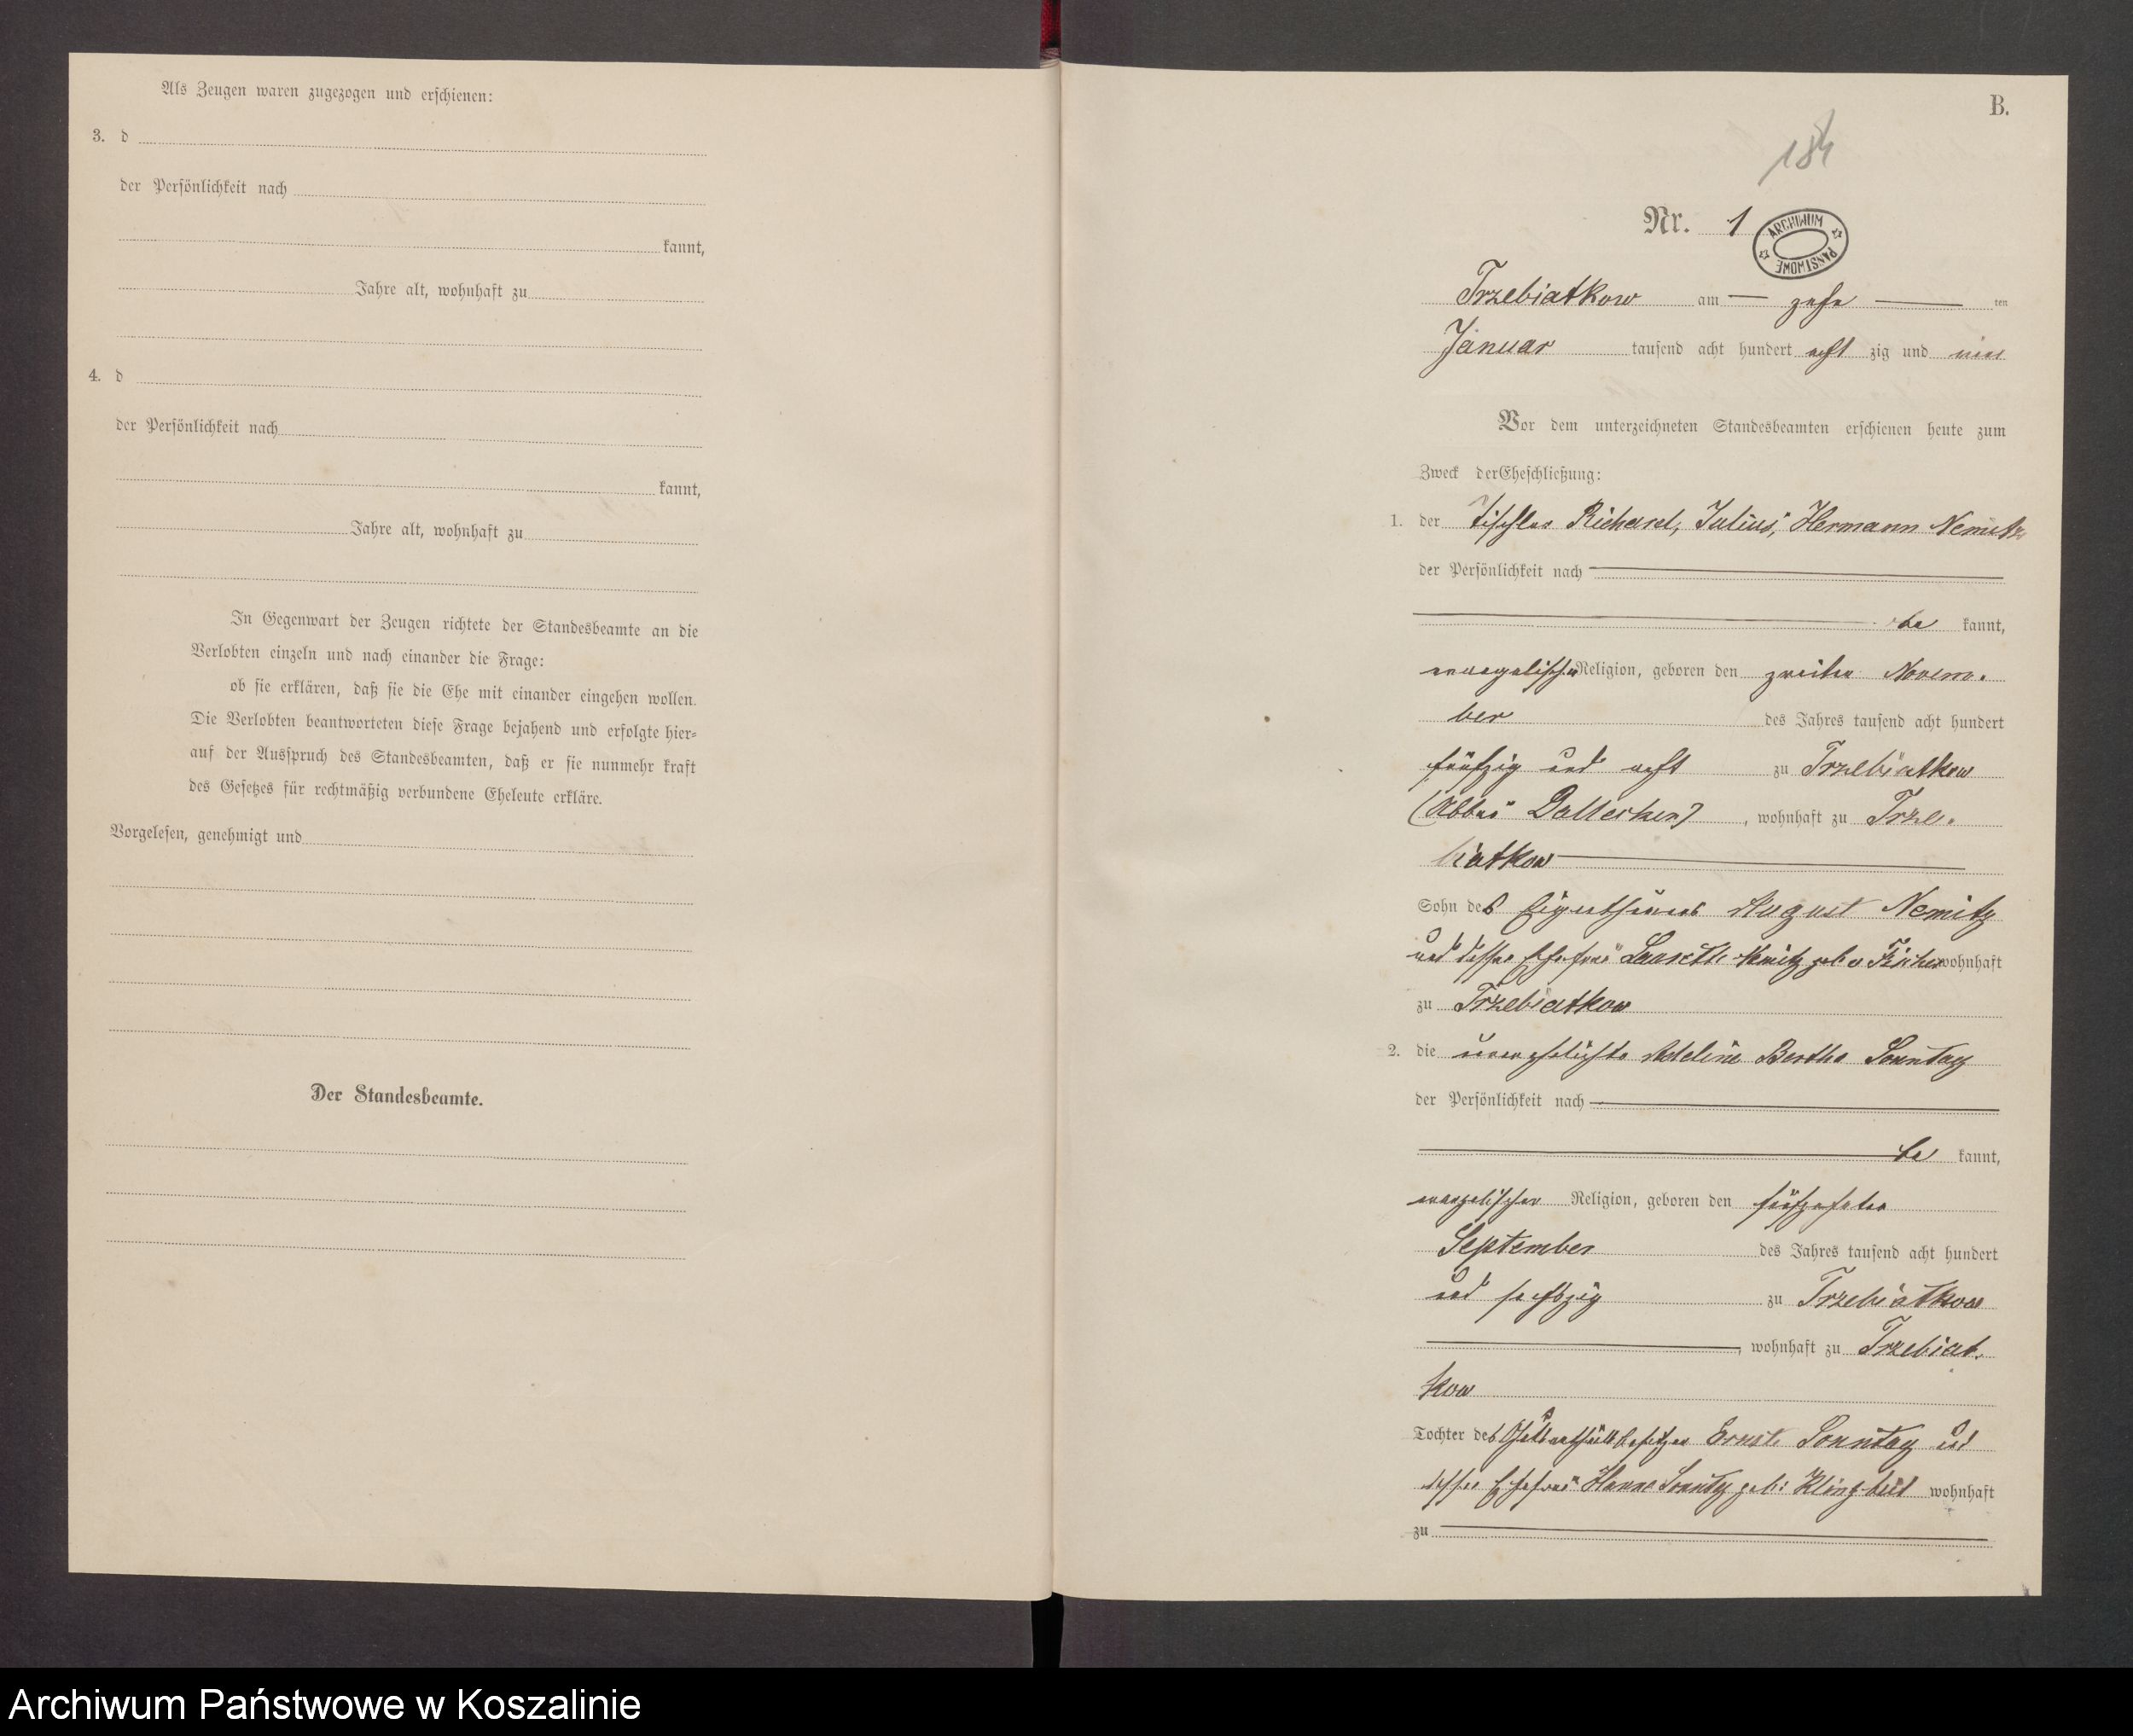 Als Zeugen waren zugezogen und erschienen:
3. d
der Persönlichkeit nach
kannt,
Jahre alt, wohnhaft zu
4. d
der Persönlichkeit nach
kannt,
Jahre alt, wohnhaft zu
In Gegenwart der Zeugen richtete der Standesbeamte an die
Verlobten einzeln und nach einander die Frage:
ob sie erklären, daß sie die Ehe mit einander eingehen wollen.
Die Verlobten beantworteten diese Frage bejahend und erfolgte hier=
auf der Ausspruch des Standesbeamten, daß er sie nunmehr kraft
des Gesetzes für rechtmäßig verbundene Eheleute erkläre.
Vorgelesen, genehmigt und
Der Standesbeamte.
B.
184
Nr. 1
ARCHIWUM PAŃSTWOWE
Trzebiatkow am zehn ten
Januar tausend acht hundert acht zig und vier
Vor dem unterzeichneten Standesbeamten erschienen heute zum
Zweck der Eheschließung:
1. der Tischler Richard, Julius, Hermann Nemitz
der Persönlichkeit nach
be kannt,
evangelischer Religion, geboren den zweiten Novem-
ber des Jahres tausend acht hundert
fünfzig und acht zu Trzebiatkow
(Abbau , wohnhaft zu Trze-
biatkow
Sohn des Eigenthümers August Nemitz
und dessen Ehefrau Nemitz geb. wohnhaft
zu Trzebiatkow
2. die unverehelichte Adeline Bertha Sonntag
der Persönlichkeit nach
be kannt,
evangelischer Religion, geboren den fünfzehnten
September des Jahres tausend acht hundert
und sechszig zu Trzebiatkow
, wohnhaft zu Trzebiat-
kow
Tochter des Ernst Sonntag und
dessen Ehefrau Hanne Sonntag geb: Klingbeil wohnhaft
zu
Archiwum Państwowe w Koszalinie